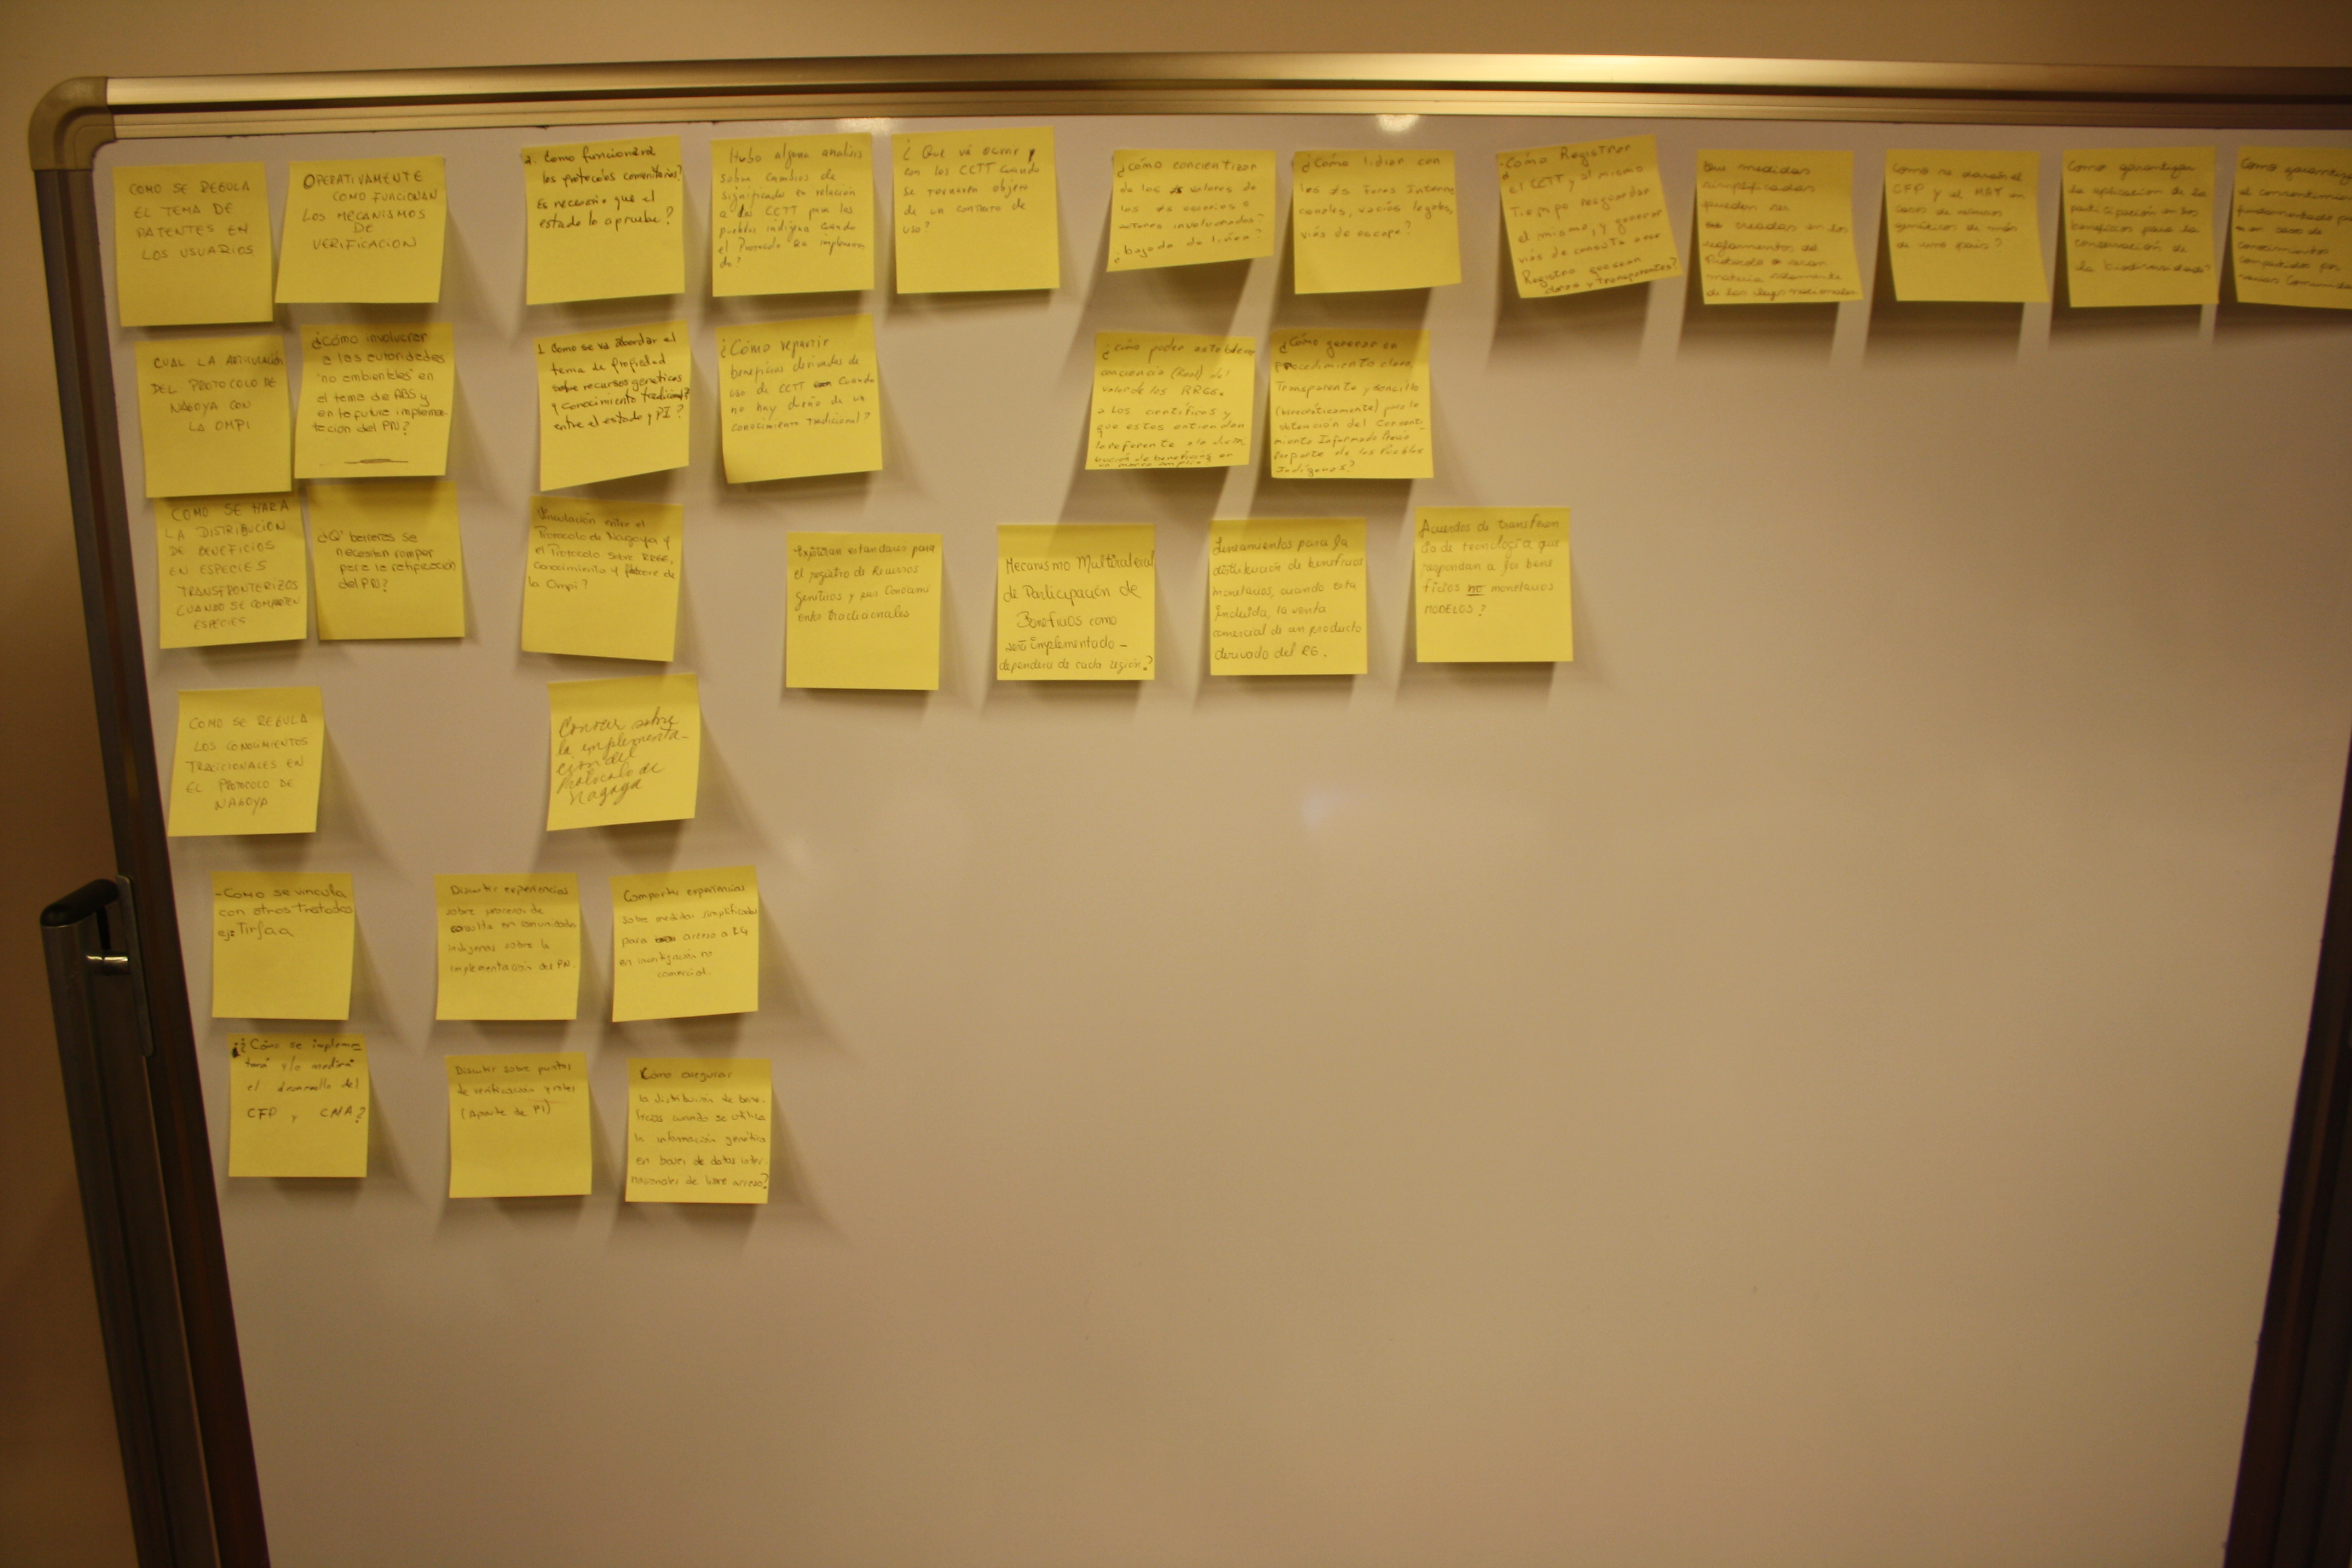 COMO SE REGULA
EL TEMA DE
PATENTES EN
LOS USUARIOS
OPERATIVAMENTE
COMO FUNCIONAN
LOS MECANISMOS
DE
VERIFICACION
2. Como funcionará
los protocolos comunitarios?
Es necesario que el
estado lo apruebe?
Hubo alguna analisis
sobre cambios de
significado en relación
a los CCTT para los
pueblos indígena cuando
el Protocolo se implemen
do?
¿Que vá ocurrir
con los CCTT cuando
se tornaren objeto
de un contrato de
uso?
¿cómo concientizar
de los ≠s valores de
los ≠s usuarios o
actores involucrados?
bajada de línea?
¿Cómo lidiar con
los ≠s Foros Interna
cionales, vacíos legales,
vías de escape?
-Cómo Registrar
el CCTT y al mismo
Tiempo resguardar
el mismo, y generar
vías de consulta a ese
Registro que sean
claras y transparentes?
Que medidas
simplificadas
pueden ser
creadas en los
reglamentos del
Protocolo o seran
materia solamente
de las leyes nacionales
Como se darán el
CFP y el MAT en
caso de recursos
genéticos de más
de uno país?
Como garantizar
la aplicación de la
participación en los
beneficios para la
conservación de
la biodiversidad?
Como garantizar
el consentimien
fundamentado pr
en caso de
conocimientos
compartidos por
varias Comunida
CUAL LA ARTICULACIÓN
DEL PROTOCOLO DE
NAGOYA CON
LA OMPI
¿Cómo involucrar
a las autoridades
"no ambientales" en
el tema de ABS y
en la futura implemen-
tación del PN?
1. Como se va abordar el
tema de Propiedad
sobre recursos geneticos
y conocimiento tradicional?
entre el estado y PI?
¿Cómo repartir
beneficios derivados de
uso de CCTT cuando
no hay dueño de un
conocimiento tradicional?
¿Cómo poder establecer
conciencia (Real) del
valor de los RRGG.
a los científicos y
que estos entiendan
lo referente a la distri
bución de beneficios en
un marco amplio
¿Cómo generar un
procedimiento claro,
Transparente y sencillo
(burocráticamente) para la
obtención del Consenti-
miento Informado Previo
por parte de los Pueblos
Indígenas?
COMO SE HARA
LA DISTRIBUCION
DE BENEFICIOS
EN ESPECIES
TRANSFRONTERIZOS
CUANDO SE COMPARTEN
ESPECIES
¿Q' barreras se
necesitan romper
para la ratificación
del PN?
Vinculación entre el
Protocolo de Nagoya y
el Protocolo sobre RRGG,
Conocimiento y folclore de
la Ompi?
Existirán estandares para
el registro de Recursos
Genéticos y sus Conocimi
entos tradicionales
Mecanismo Multilateral
de Participación de
Beneficios como
será implementado -
dependerá de cada región?
Lineamientos para la
distribución de beneficios
monetarios, cuando esta
incluida, la venta
comercial de un producto
derivado del RG.
Acuerdos de transferen
cia de tecnología que
respondan a los bene
ficios no monetarios
MODELOS?
COMO SE REGULA
LOS CONOCIMIENTOS
TRADICIONALES EN
EL PROTOCOLO DE
NAGOYA
Conocer sobre
la implementa-
ción del
Protocolo de
Nagoya
-Como se vincula
con otros tratados
eje Tirfaa
Discutir experiencias
sobre procesos de
consulta en comunidades
indígenas sobre la
implementación del PN.
Compartir experiencias
sobre medidas simplificadas
para acceso a RG
en investigación no
comercial.
¿Cómo se implemen
tará y/o medirá
el desarrollo del
CFP y CMA?
Discutir sobre puntos
de verificación y roles
(Aparte de PI)
Cómo asegurar
la distribución de bene-
ficios cuando se utiliza
la información genética
en bases de datos inter-
nacionales de libre acceso?